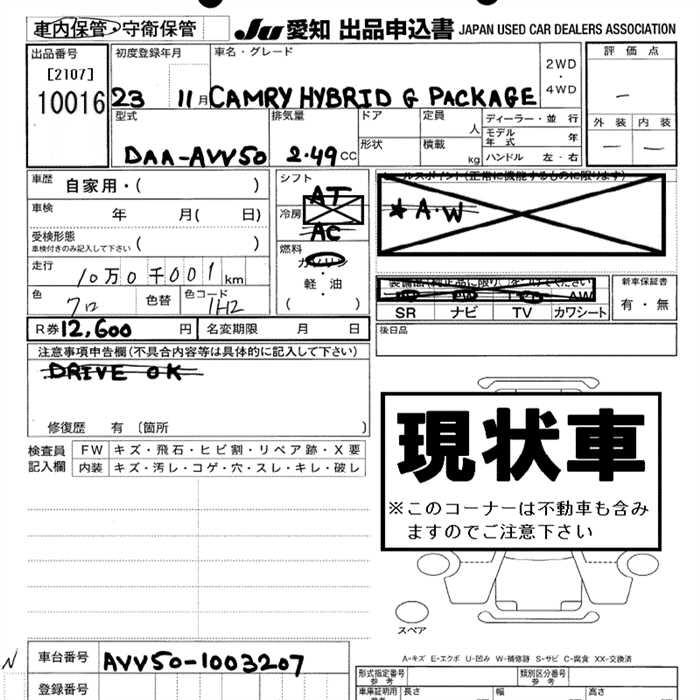 車内保管・守衛保管
JU 愛知 出品申込書 JAPAN USED CAR DEALERS ASSOCIATION
出品番号
[2107]
10016
初度登録年月
23 11月
車名・グレード
CAMRY HYBRID G PACKAGE
2WD
・
4WD
評価点
－
外装 内装
－ －
型式
DAA-AVV50
排気量
2.49 CC
ドア
形状
定員
人
積載
kg
ディーラー・並行
モデル年式 年
ハンドル 左・右
車歴 自家用・( )
車検 年 月( 日)
受検形態
車検付きのみ記入して下さい ( )
走行 10万0千001km
色 クロ 色替 色コード 1H2
R券 12,600 円 名変期限 月 日
シフト
AT
冷房
AC
燃料
ガソリン
・
軽・油
( )
セールスポイント(正常に機能するものに限ります)
★A・W
SR ナビ TV カワシート
新車保証書
有・無
後日品
注意事項申告欄(不具合内容等は具体的に記入して下さい)
DRIVE OK
修復歴 有 〔箇所 〕
検査員記入欄
FW キズ・飛石・ヒビ割・リペア跡・X要
内装 キズ・汚レ・コゲ・穴・スレ・キレ・破レ
現状車
※このコーナーは不動車も含み
ますのでご注意下さい
スペア
A=キズ E=エクボ U=凹み W=補修跡 S=サビ C=腐食 XX=交換済
N
車台番号 AVV50-1003207
登録番号
形式指定番号
参考
類別区分番号
参考
車庫証明用
長さ 幅 高さ